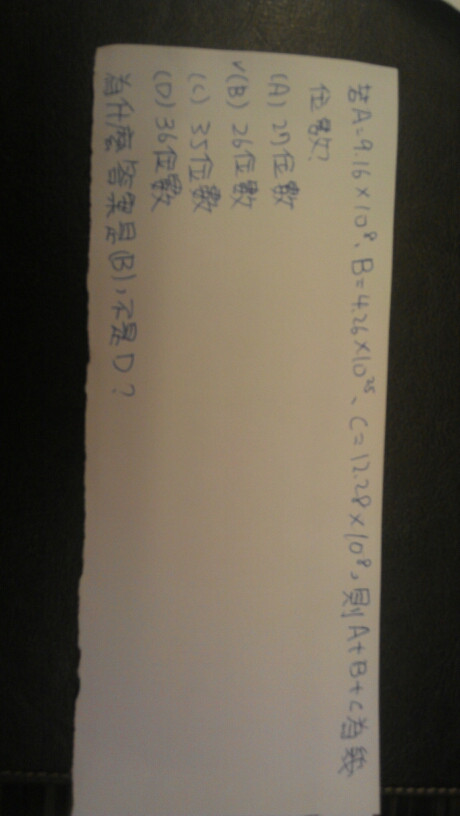 若A=9.16×10⁸、B=4.26×10²⁵、C=12.28×10⁸,則A+B+C為幾
位數?
(A) 27位數
✓(B) 26位數
(C) 35位數
(D) 36位數
為什麼答案是(B),不是D?